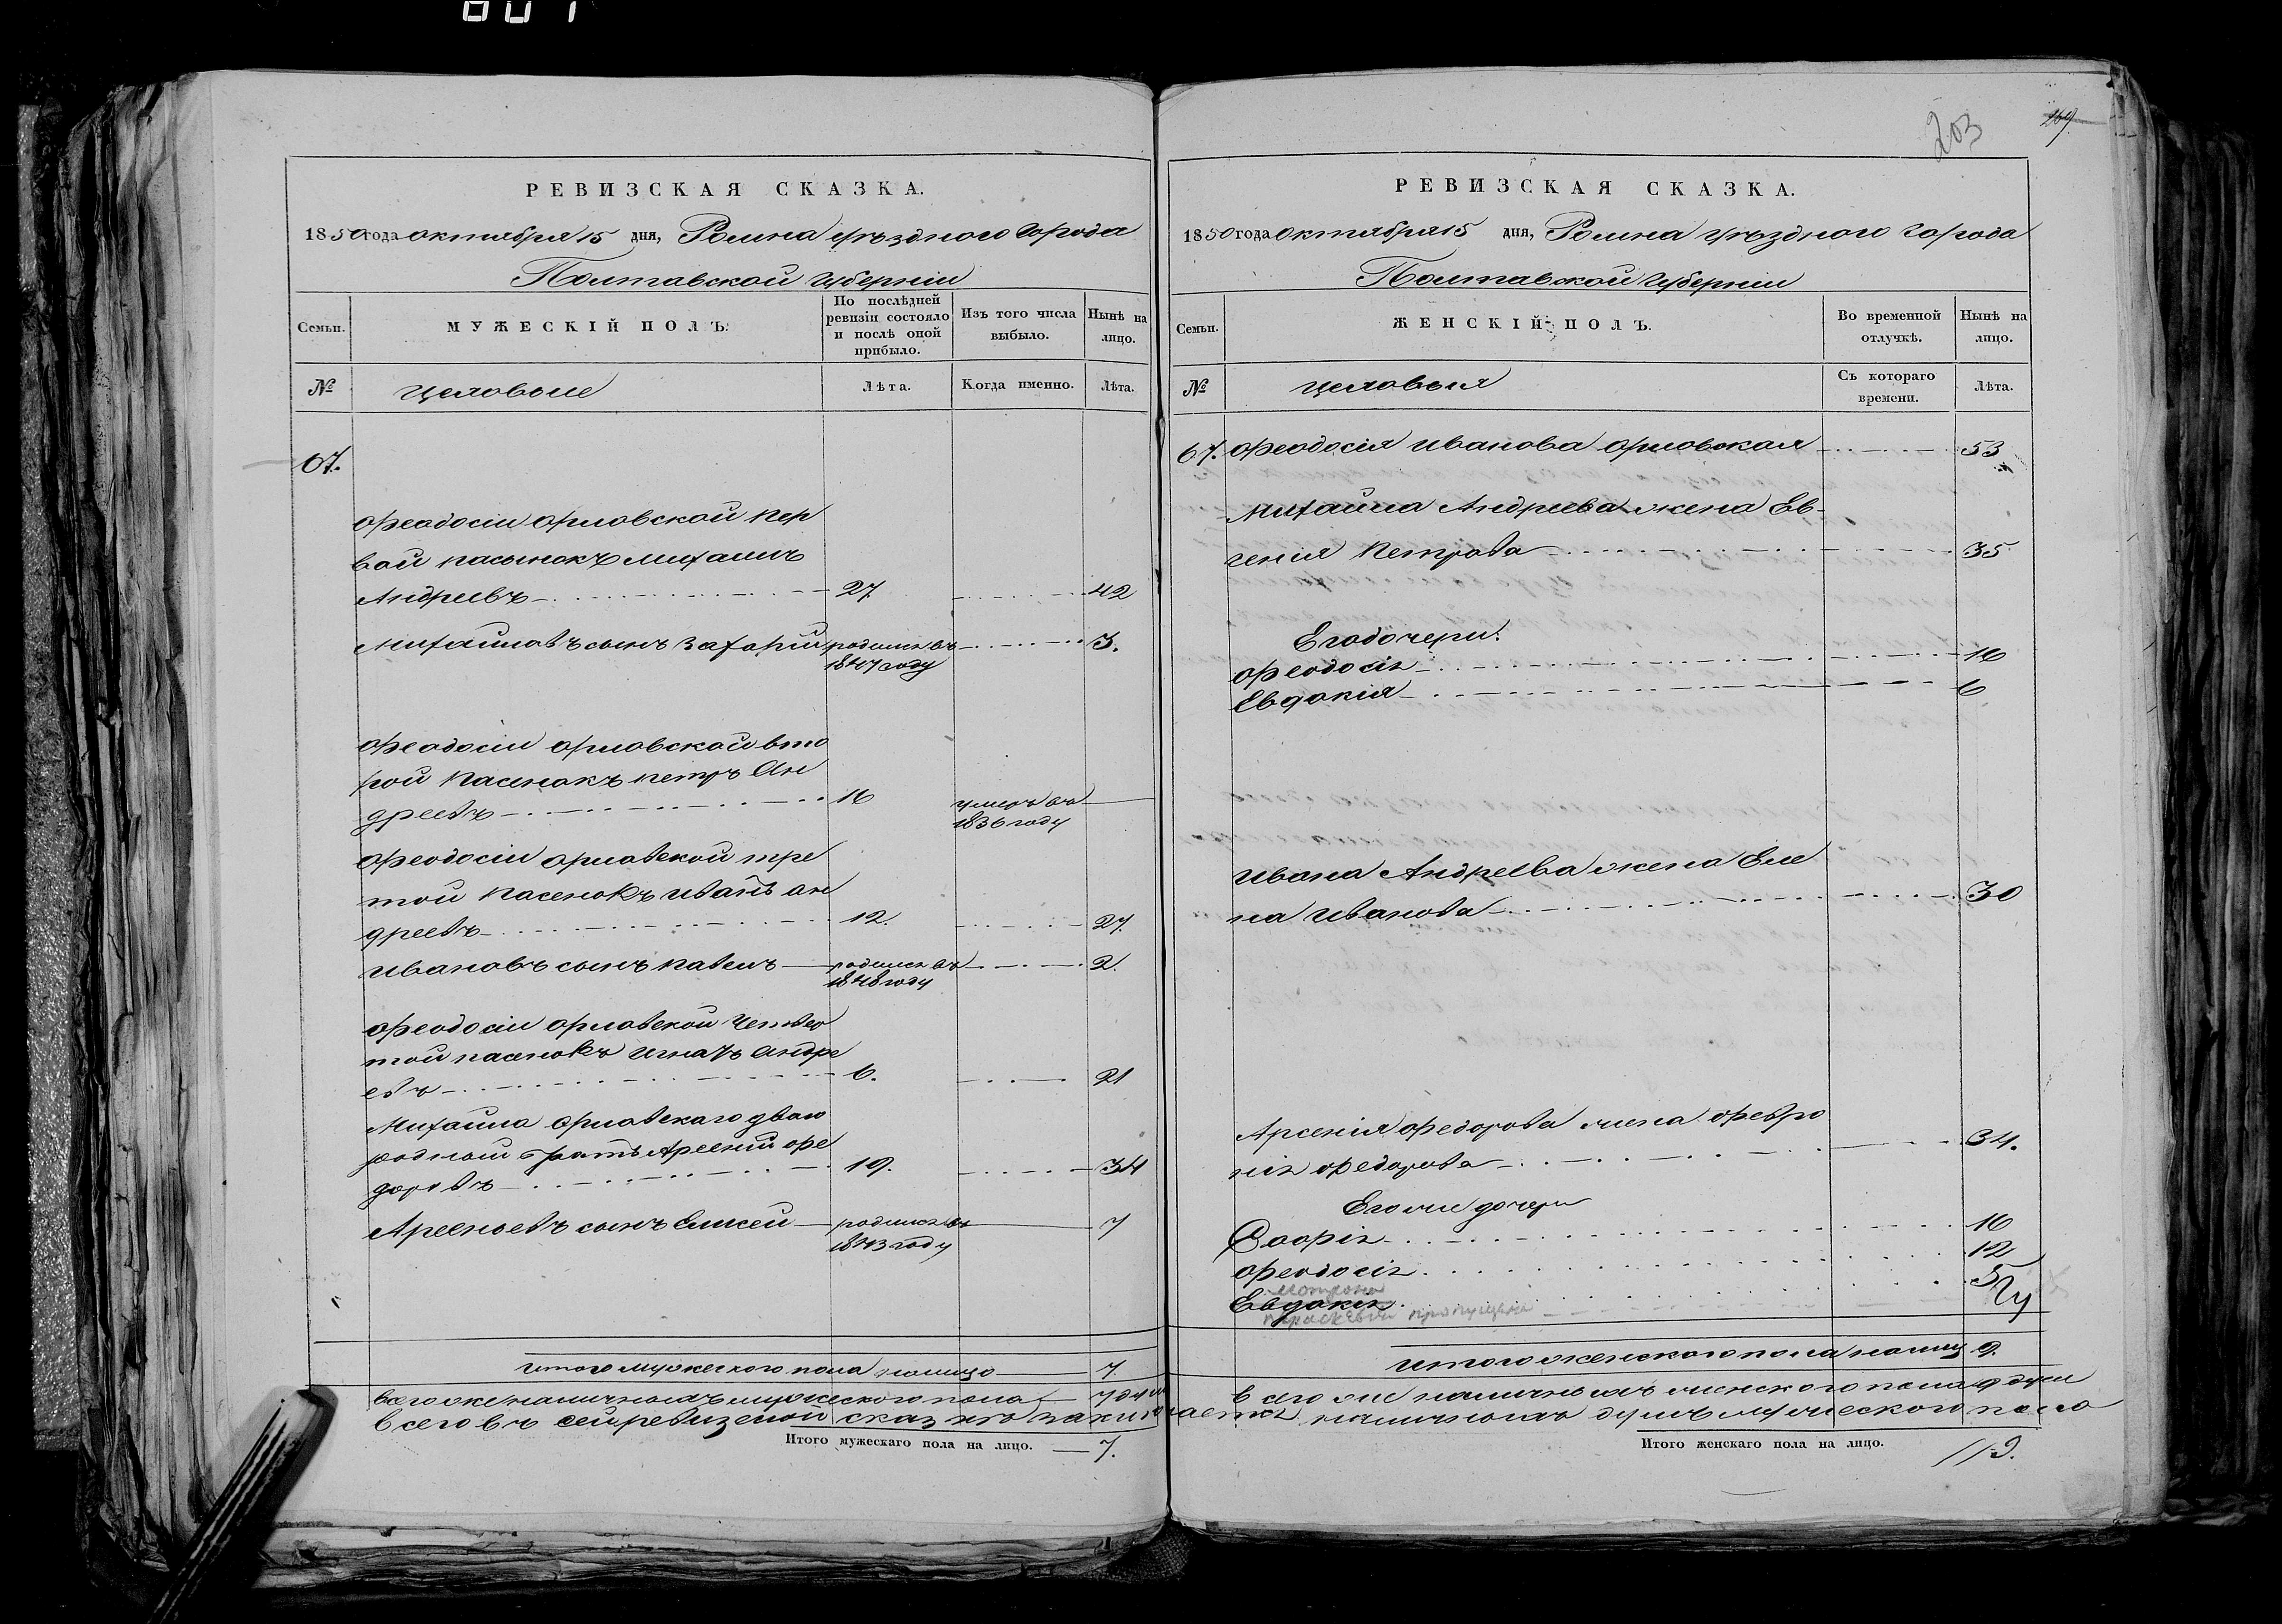 807
РЕВИЗСКАЯ СКАЗКА.
1850 года октября 15 дня, Ромна уѣзднаго города
Полтавской губерніи
Семьи.
МУЖЕСКІЙ ПОЛЪ.
По послѣдней ревизіи состояло и послѣ оной прибыло.
Изъ того числа выбыло.
Нынѣ на лицо.
№
Цеховые
Лѣта.
Когда именно.
Лѣта.
67.
Ѳеодосіи Орловской пер
вой пасынокъ Михаилъ
Андреевъ 27 42
Михайловъ сынъ Захарій родился въ 1847 году 3.
Ѳеодосіи Орловской вто
рой пасенокъ Петръ Ан
дреевъ 16 умеръ въ 1836 году
Ѳеодосіи Орловской тре
той пасенокъ Иванъ Ан
дреевъ 12. 27.
Ивановъ сынъ Павелъ родился въ 1848 году 2.
Ѳеодосіи Орловской четвер
той пасенокъ Игнатъ Андре
евъ 6. 21
Михаила Орловскаго двою
родный братъ Арсений Ѳе
доровъ 19. 34
Арсеньевъ сынъ Елисей родился въ 1843 году 7
Итого мужеского пола налицо 7.
Всего же наличныхъ мужеского пола 7 душ
Всего въ сей ревизской сказке заключается наличныхъ душъ мужеского пола
Итого мужескаго пола на лицо. 7.
203
269
РЕВИЗСКАЯ СКАЗКА.
1850 года октября 15 дня, Ромна уѣзднаго города
Полтавской губерніи
Семьи.
ЖЕНСКІЙ ПОЛЪ.
Во временной отлучкѣ.
Нынѣ на лицо.
№
Цеховыя
Съ котораго времени.
Лѣта.
67. Ѳеодосія Иванова Орловская 53
Михаила Андреева жена Ев-
генія Петрова 35
Его дочери:
Ѳеодосія 16
Евдокія 6
Ивана Андреева жена Еле
на Иванова 30
Арсенія Ѳедорова жена Ѳевро
нія Ѳедорова 34.
Его же дочери
Софія 16
Ѳеодосія 12
Мотрона
Евдокія 5
Параскевія пропущена
Итого женского пола налицо 9.
Всего же наличныхъ женского пола 9 душ
Итого женскаго пола на лицо. 9.